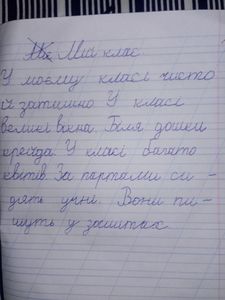 Мій клас.
У моєму класі чисто
і затишно У класі
великі вікна. Біля дошки
крейда. У класі багато
квітів. За партами си -
дять учні. Вони пи -
шуть у зошитах